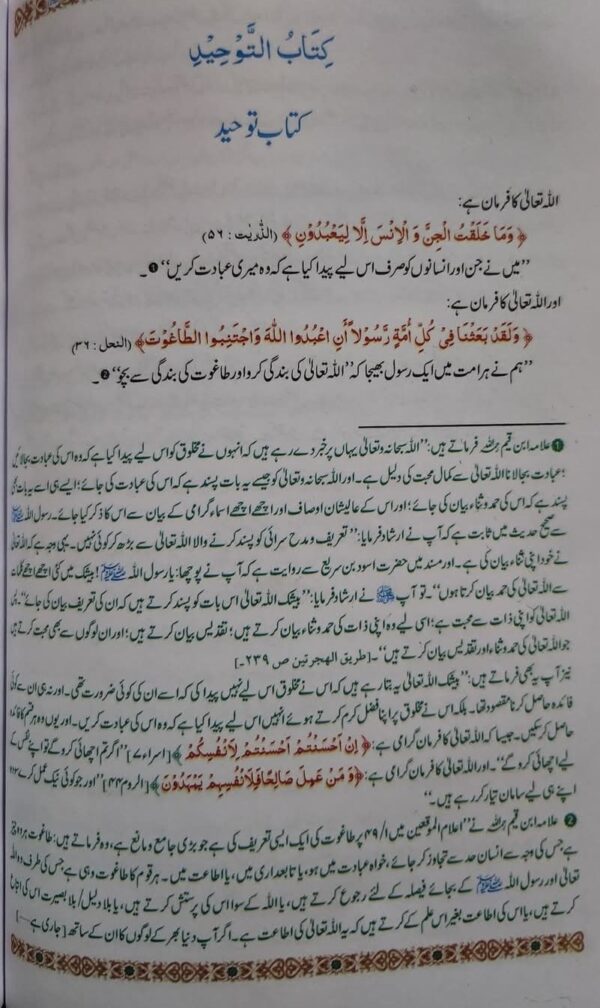 كِتَابُ التَّوْحِيْدِ
کتاب توحید
اللہ تعالیٰ کا فرمان ہے:
﴿ وَمَا خَلَقْتُ الْجِنَّ وَ الْاِنْسَ اِلَّا لِيَعْبُدُوْنِ ﴾ (الذّٰریٰت : ۵۶)
”میں نے جن اور انسانوں کو صرف اس لیے پیدا کیا ہے کہ وہ میری عبادت کریں“ ❶۔
اور اللہ تعالیٰ کا فرمان ہے:
﴿ وَلَقَدْ بَعَثْنَا فِیْ كُلِّ اُمَّةٍ رَّسُوْلاً أَنِ اعْبُدُوا اللّٰهَ وَاجْتَنِبُوا الطَّاغُوْتَ﴾ (النحل : ۳۶)
”ہم نے ہر امت میں ایک رسول بھیجا کہ ”اللہ تعالیٰ کی بندگی کرو اور طاغوت کی بندگی سے بچو“ ❷۔
❶ علامہ ابن قیم رحمہ اللہ فرماتے ہیں: ”اللہ سبحانہ وتعالیٰ یہاں پر خبر دے رہے ہیں کہ انہوں نے مخلوق کو اس لیے پیدا کیا ہے کہ وہ اس کی عبادت بجالائیں
؛ عبادت بجالانا اللہ تعالیٰ سے کمال محبت کی دلیل ہے۔ اور اللہ سبحانہ وتعالیٰ کو جیسے یہ بات پسند ہے کہ اس کی عبادت کی جائے؛ ایسے ہی اسے یہ بات بھی
پسند ہے کہ اس کی حمد و ثناء بیان کی جائے؛ اور اس کے عالیشان اوصاف اور اچھے اچھے اسماء گرامی کے بیان سے اس کا ذکر کیا جائے۔ رسول اللہ ﷺ
سے صحیح حدیث میں ثابت ہے کہ آپ نے ارشاد فرمایا: ”تعریف و مدح سرائی کو پسند کرنے والا اللہ تعالیٰ سے بڑھ کر کوئی نہیں۔ یہی وجہ ہے کہ اللہ تعالیٰ
نے خود اپنی ثناء بیان کی ہے۔ اور مسند میں حضرت اسود بن سریع سے روایت ہے کہ آپ نے پوچھا: یا رسول اللہ ﷺ! بیشک میں کئی اچھے اچھے کلمات
سے اللہ تعالیٰ کی حمد بیان کرتا ہوں“۔ تو آپ ﷺ نے ارشاد فرمایا: ”بیشک اللہ تعالیٰ اس بات کو پسند کرتے ہیں کہ ان کی تعریف بیان کی جائے“۔
اللہ تعالیٰ کو اپنی ذات سے محبت ہے؛ اسی لیے وہ اپنی ذات کی حمد و ثناء بیان کرتے ہیں؛ تقدیس بیان کرتے ہیں؛ اور ان لوگوں سے بھی محبت کرتے ہیں
جو اللہ تعالیٰ کی حمد و ثناء اور تقدیس بیان کرتے ہیں“۔ [طریق الھجرتین ص ۲۳۹۔]
نیز آپ یہ بھی فرماتے ہیں: ”بیشک اللہ تعالیٰ یہ بتا رہے ہیں کہ اس نے مخلوق اس لیے نہیں پیدا کی کہ اسے ان کی کوئی ضرورت تھی۔ اور نہ ہی ان سے کوئی
فائدہ حاصل کرنا مقصود تھا۔ بلکہ اس نے مخلوق پر اپنا فضل کرم کرتے ہوئے انہیں اس لیے پیدا کیا ہے کہ وہ اس کی عبادت کریں۔ اور یوں وہ ہر قسم کا فائدہ
حاصل کر سکیں۔ جیسا کہ اللہ تعالیٰ کا فرمان گرامی ہے: ﴿ اِنْ اَحْسَنْتُمْ اَحْسَنْتُمْ لِاَنْفُسِكُمْ ﴾ [اسراء ۷] ”اگر تم اچھائی کرو گے تو اپنے نفس کے
لیے اچھائی کرو گے“۔ اور اللہ تعالیٰ کا فرمان گرامی ہے: ﴿وَ مَنْ عَمِلَ صَالِحًا فَلِاَنْفُسِهِمْ يَمْهَدُوْنَ ﴾ [الروم ۴۴] ”اور جو کوئی نیک عمل کرے
اپنے ہی لیے سامان تیار کر رہے ہیں۔“
❷ علامہ ابن قیم رحمہ اللہ نے ”اعلام الموقعین میں ۱/ ۴۹ پر طاغوت کی ایک ایسی تعریف کی ہے جو بڑی جامع و مانع ہے، وہ فرماتے ہیں: طاغوت ہر وہ چیز
ہے جس کی وجہ سے انسان حد سے تجاوز کر جائے، خواہ عبادت میں ہو، یا تابعداری میں، یا اطاعت میں۔ ہر قوم کا طاغوت وہی ہے جس کی طرف وہ اللہ
تعالیٰ اور رسول اللہ ﷺ کے بجائے فیصلہ کے لئے رجوع کرتے ہیں، یا اللہ کے سوا اس کی پرستش کرتے ہیں، یا بلا دلیل/ بلا بصیرت اس کی اتباع
کرتے ہیں، یا اس کی اطاعت بغیر اس علم کے کرتے ہیں کہ یہ اللہ تعالیٰ کی اطاعت ہے۔ اگر آپ دنیا بھر کے لوگوں کا ان کے ساتھ [جاری ہے---]